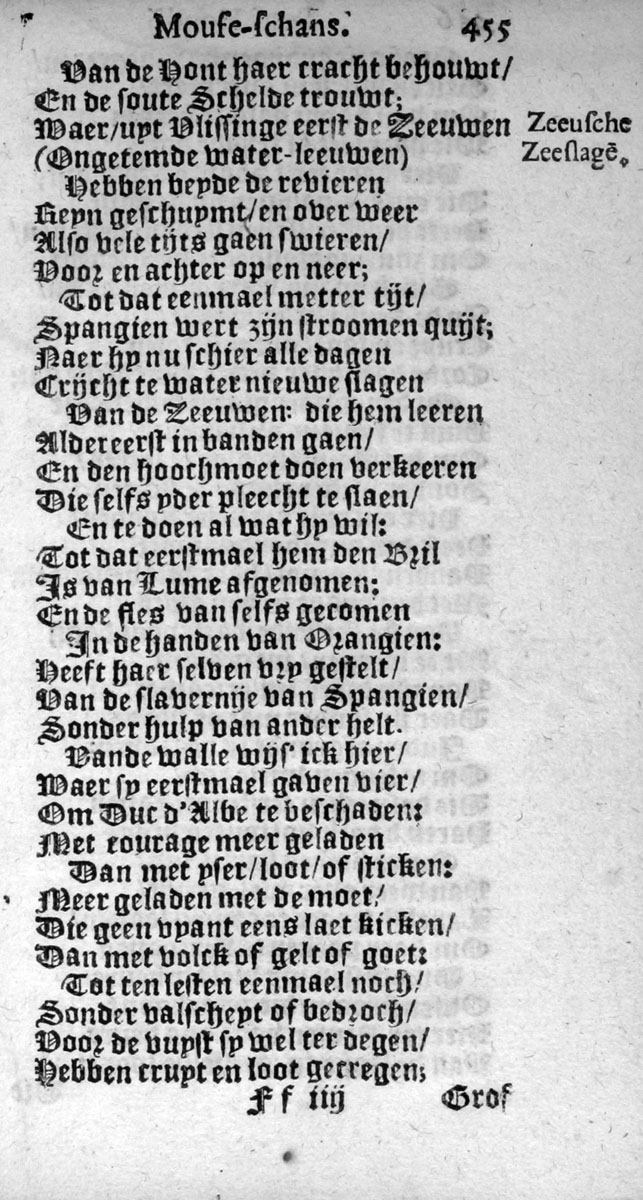 Mouse-schans. 455
Van de Hont haer cracht behouwt/
En de soute Schelde trouwt;
Waer/uyt Vlissinge eerst de Zeeuwen
Zeeusche
(Ongetemde water-leeuwen)
Zeeslagē.
Hebben beyde de revieren
Reyn geschuymt/en over weer
Also vele tijts gaen swieren/
Voor en achter op en neer;
Tot dat eenmael metter tijt/
Spangien wert zijn stroomen quijt;
Naer hy nu schier alle dagen
Crijcht te water nieuwe slagen
Van de Zeeuwen: die hem leeren
Aldereerst in banden gaen/
En den hoochmoet doen verkeeren
Die selfs yder pleecht te slaen/
En te doen al wat hy wil:
Tot dat eerstmael hem den Bril
Is van Lume afgenomen;
Ende fles van selfs gecomen
In de handen van Orangien:
Heeft haer selven vry gestelt/
Van de slavernije van Spangien/
Sonder hulp van ander helt.
Vande walle wijs' ick hier/
Waer sy eerstmael gaven vier/
Om Duc d'Albe te beschaden:
Met courage meer geladen
Dan met yser/loot/of sticken:
Meer geladen met de moet/
Die geen vyant eens laet kicken/
Dan met volck of gelt of goet:
Tot ten lesten eenmael noch/
Sonder valscheyt of bedroch/
Voor de vuyst sy wel ter degen/
Hebben cruyt en loot gecregen;
Ff iiij Grof